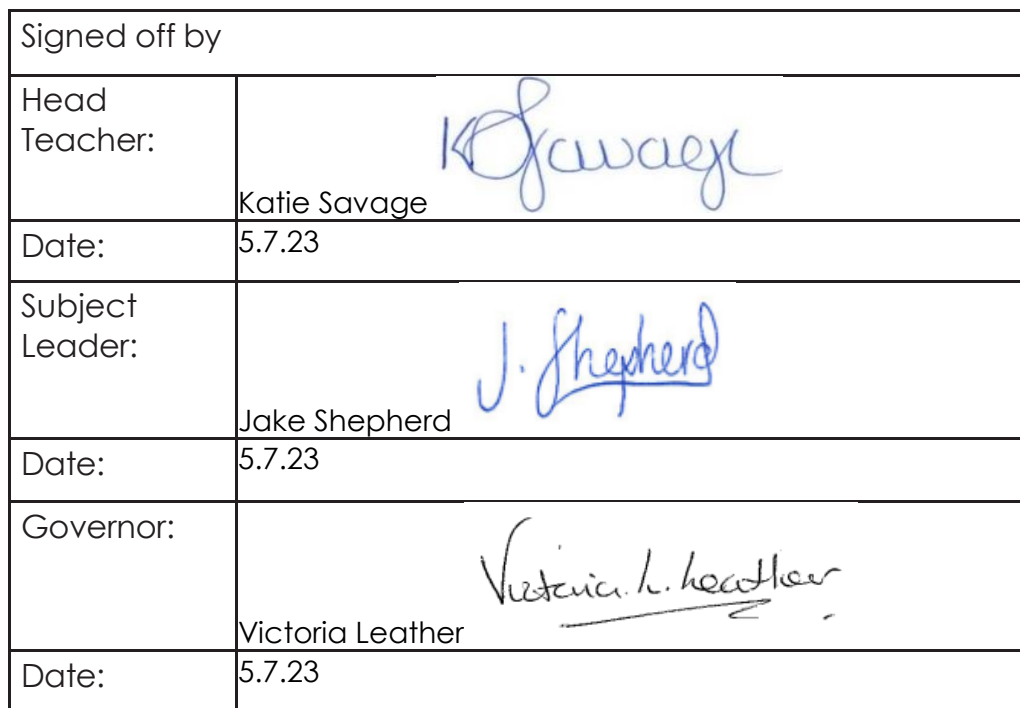 Signed off by
Head
Teacher:
K Savage
Katie Savage
Date:
5.7.23
Subject
Leader:
J. Shepherd
Jake Shepherd
Date:
5.7.23
Governor:
Victoria. L. Leather
Victoria Leather
Date:
5.7.23